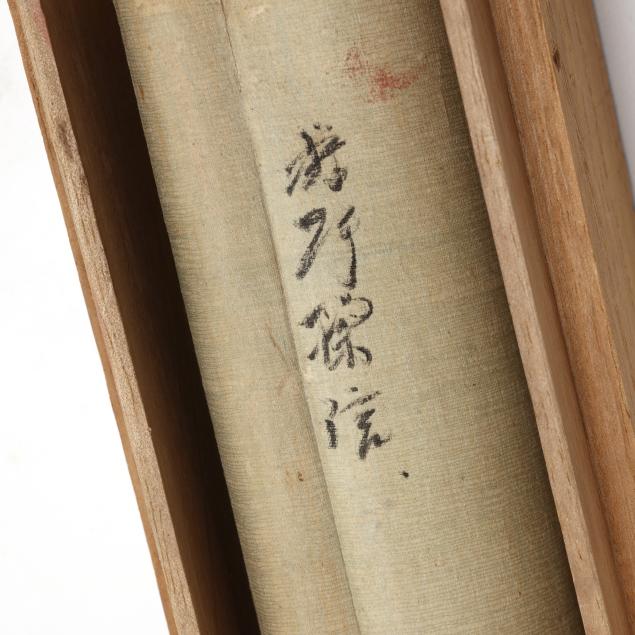 狩野探信